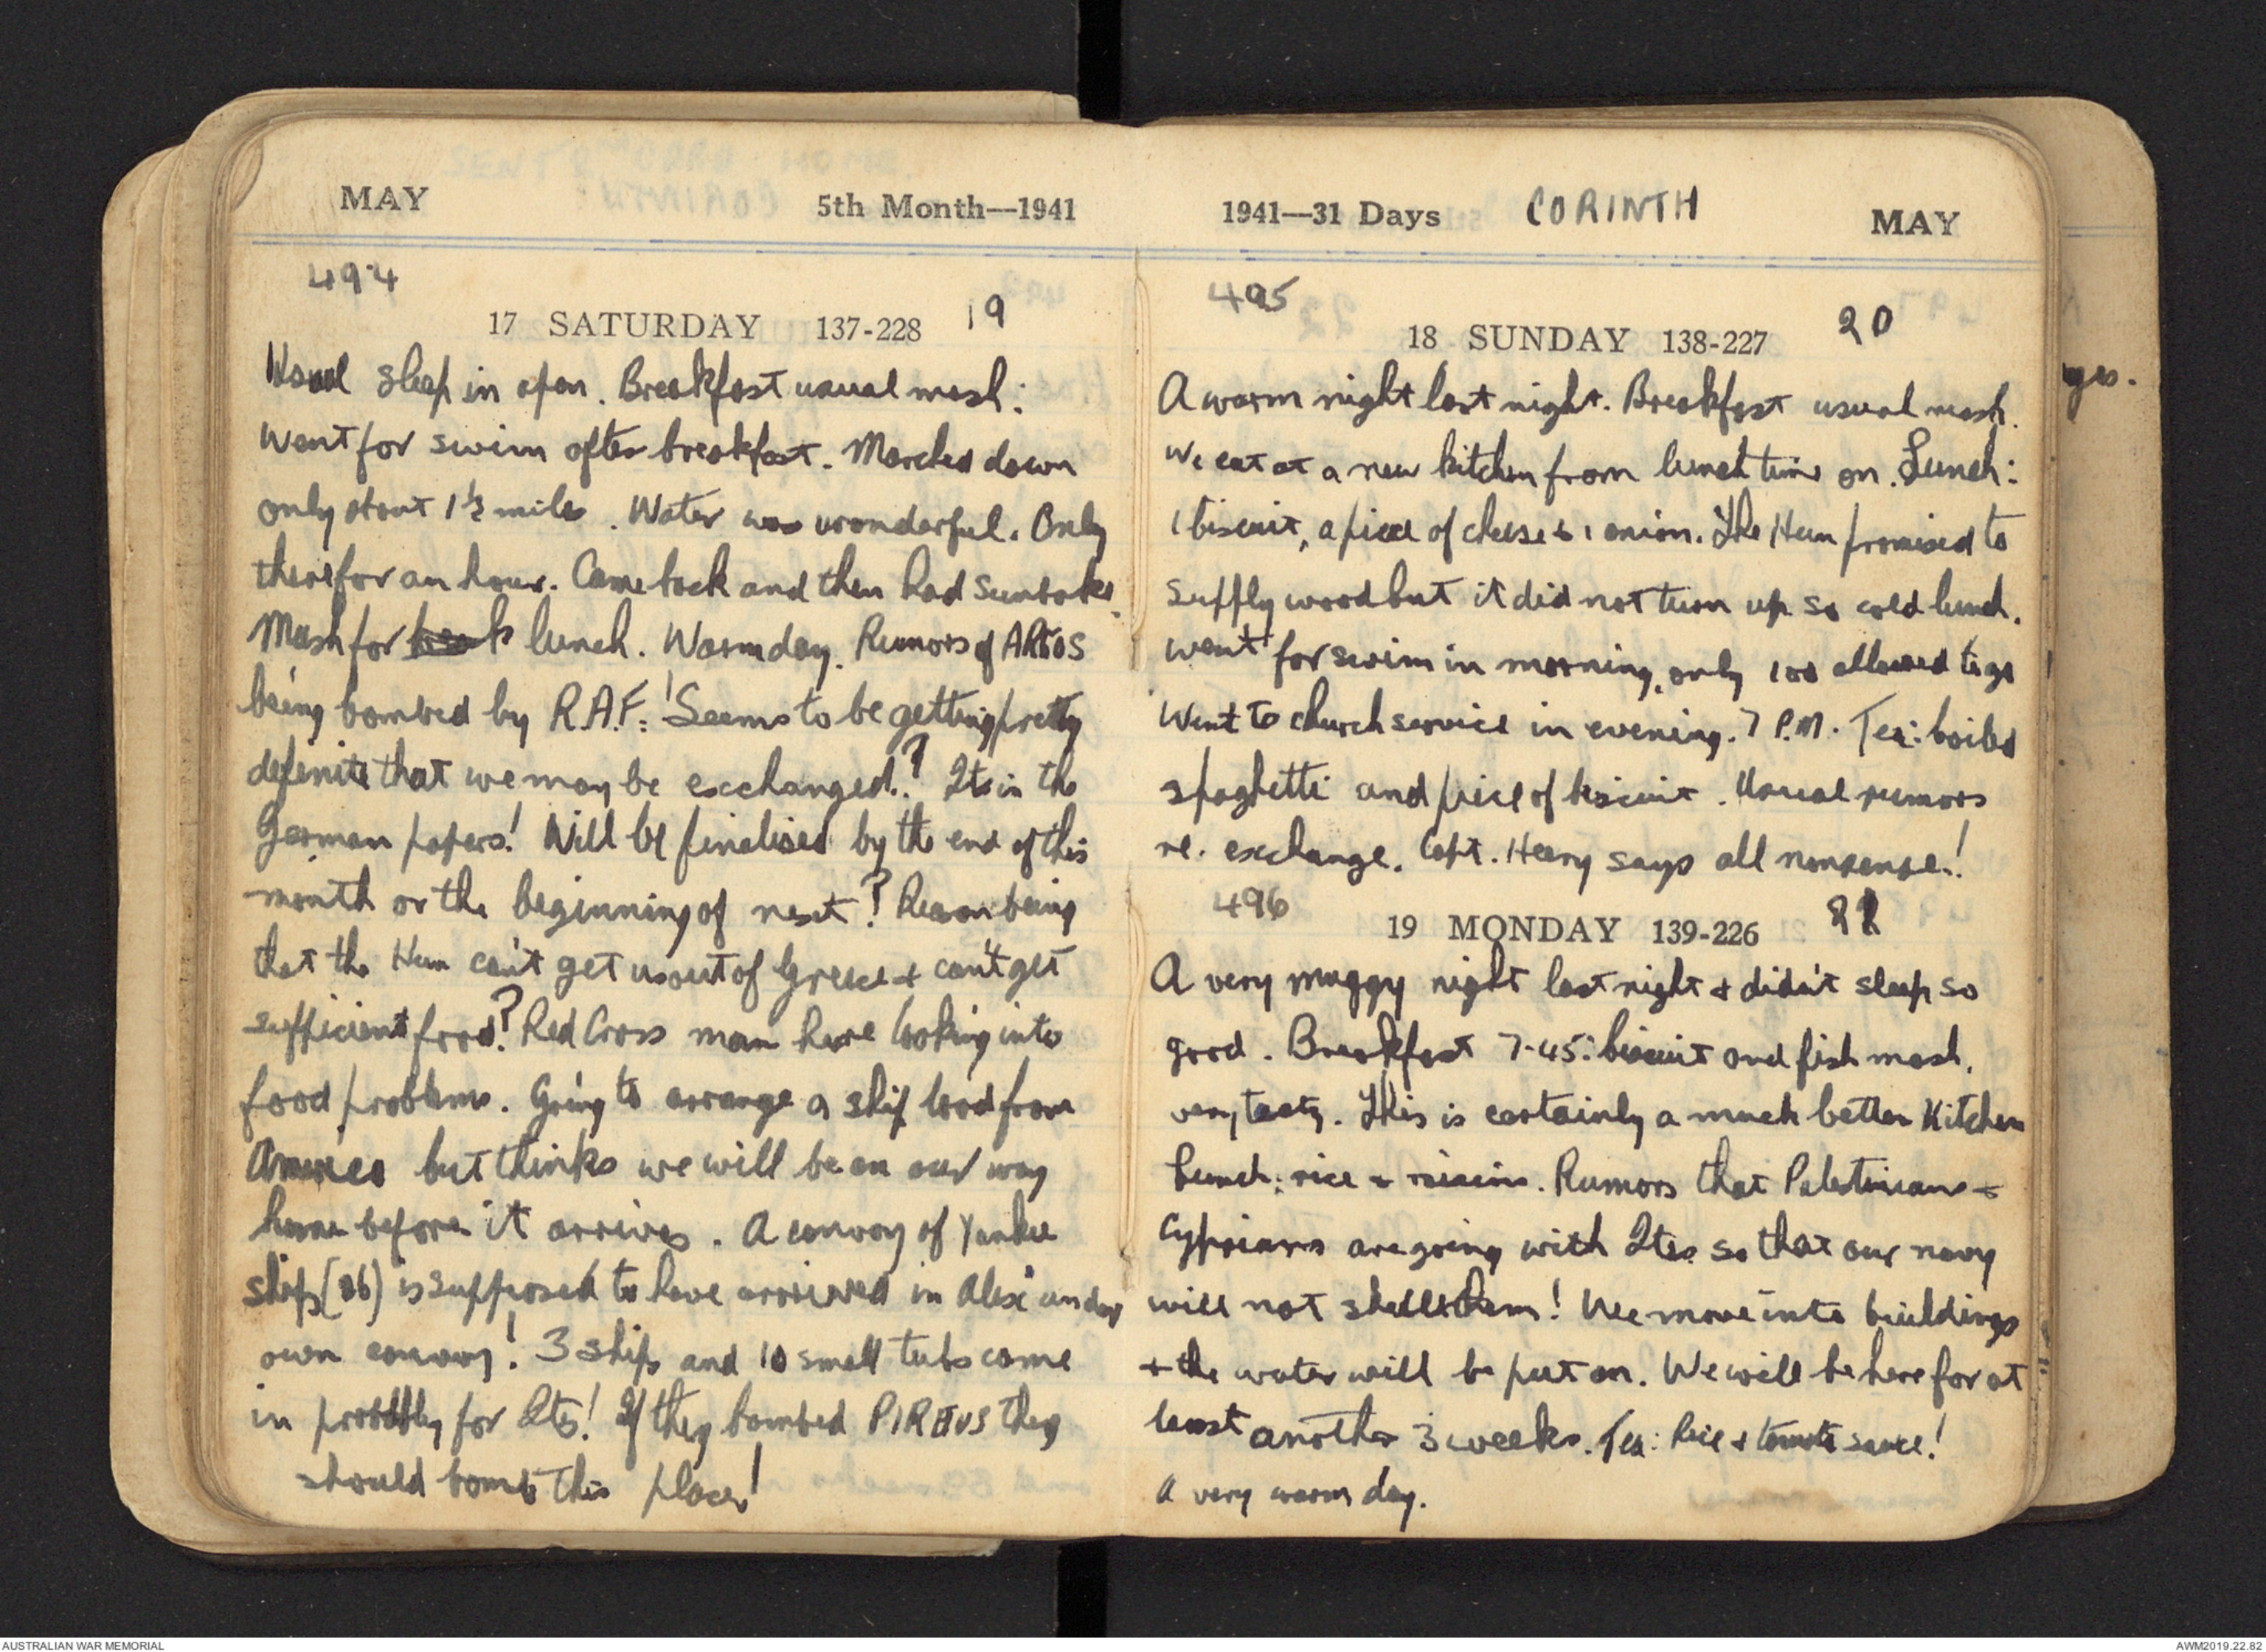 MAY 5th Month—1941
494
17 SATURDAY 137-228 19
Usual sleep in open. Breakfast usual mash:
Went for swim after breakfast. Marched down
only about 1½ miles. Water was wonderful. Only
there for an hour. Came back and then had sunbake.
Mash for lunch. Warm day. Rumors of ARGOS
being bombed by R.A.F.! Seems to be getting pretty
definite that we may be exchanged.? Its in the
German papers! Will be finalised by the end of this
month or the beginning of next? Reason being
that the Hun can't get us out of Greece + can't get
sufficient food? Red Cross man here looking into
food problems. Going to arrange a ship load from
America but thinks we will be on our way
home before it arrives. A convoy of Yankee
ships (86) is supposed to have arrived in Alex under
own convoy! 3 ships and 10 small tubs came
in probably for Ites! If they bombed PIREUS they
should bomb this place!
1941—31 Days CORINTH MAY
495
18 SUNDAY 138-227 20
A warm night last night. Breakfast usual mash.
We eat at a new kitchen from lunch time on. Lunch:
1 biscuit, a piece of cheese & 1 onion. The Hun promised to
supply wood but it did not turn up so cold lunch.
Went for swim in morning, only 100 allowed to go
Went to church service in evening. 7 P.M. Tea: boiled
spaghetti and piece of biscuit. Usual rumors
re. exchange. Capt. Heary says all nonsense.!
496
19 MONDAY 139-226 21
A very muggy night last night + didn't sleep so
good. Breakfast 7-45: biscuit and fish mash,
very tasty. This is certainly a much better Kitchen
Lunch: rice + raisins. Rumors that Palestinians +
Cyprians are going with Ites so that our navy
will not shell them! We move into buildings
+ the water will be put on. We will be here for at
least another 3 weeks. Tea: Rice + tomato sauce!
A very warm day.
ges.
AUSTRALIAN WAR MEMORIAL AWM2019.22.82